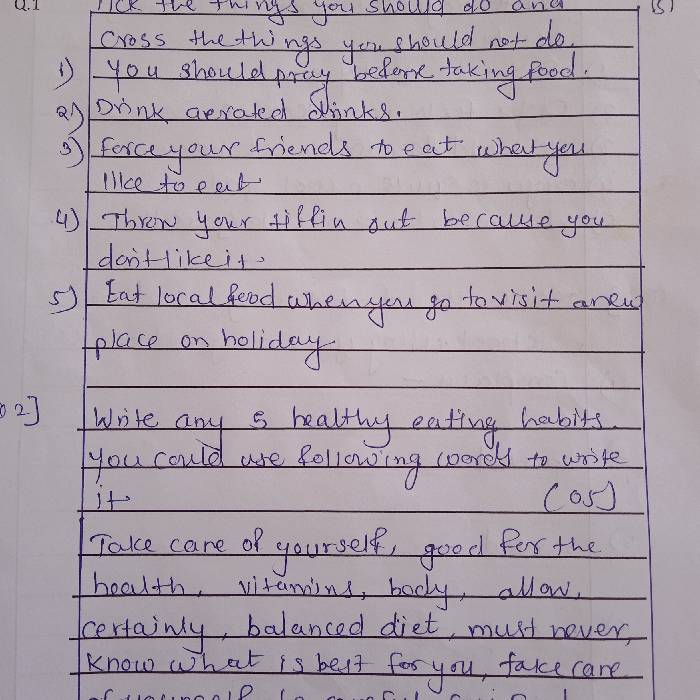 Q.1 Tick the things you should do and (5)
Cross the things you should not do.
1) You should pray before taking food.
2) Drink aerated drinks.
3) Force your friends to eat what you
like to eat
4) Throw your tiffin out because you
don't like it.
5) Eat local food when you go to visit a new
place on holiday
Q 2] Write any 5 healthy eating habits.
You could use following words to write
it (05)
Take care of yourself, good for the
health, vitamins, body, allow,
certainly, balanced diet, must never,
know what is best for you, take care
of yourself